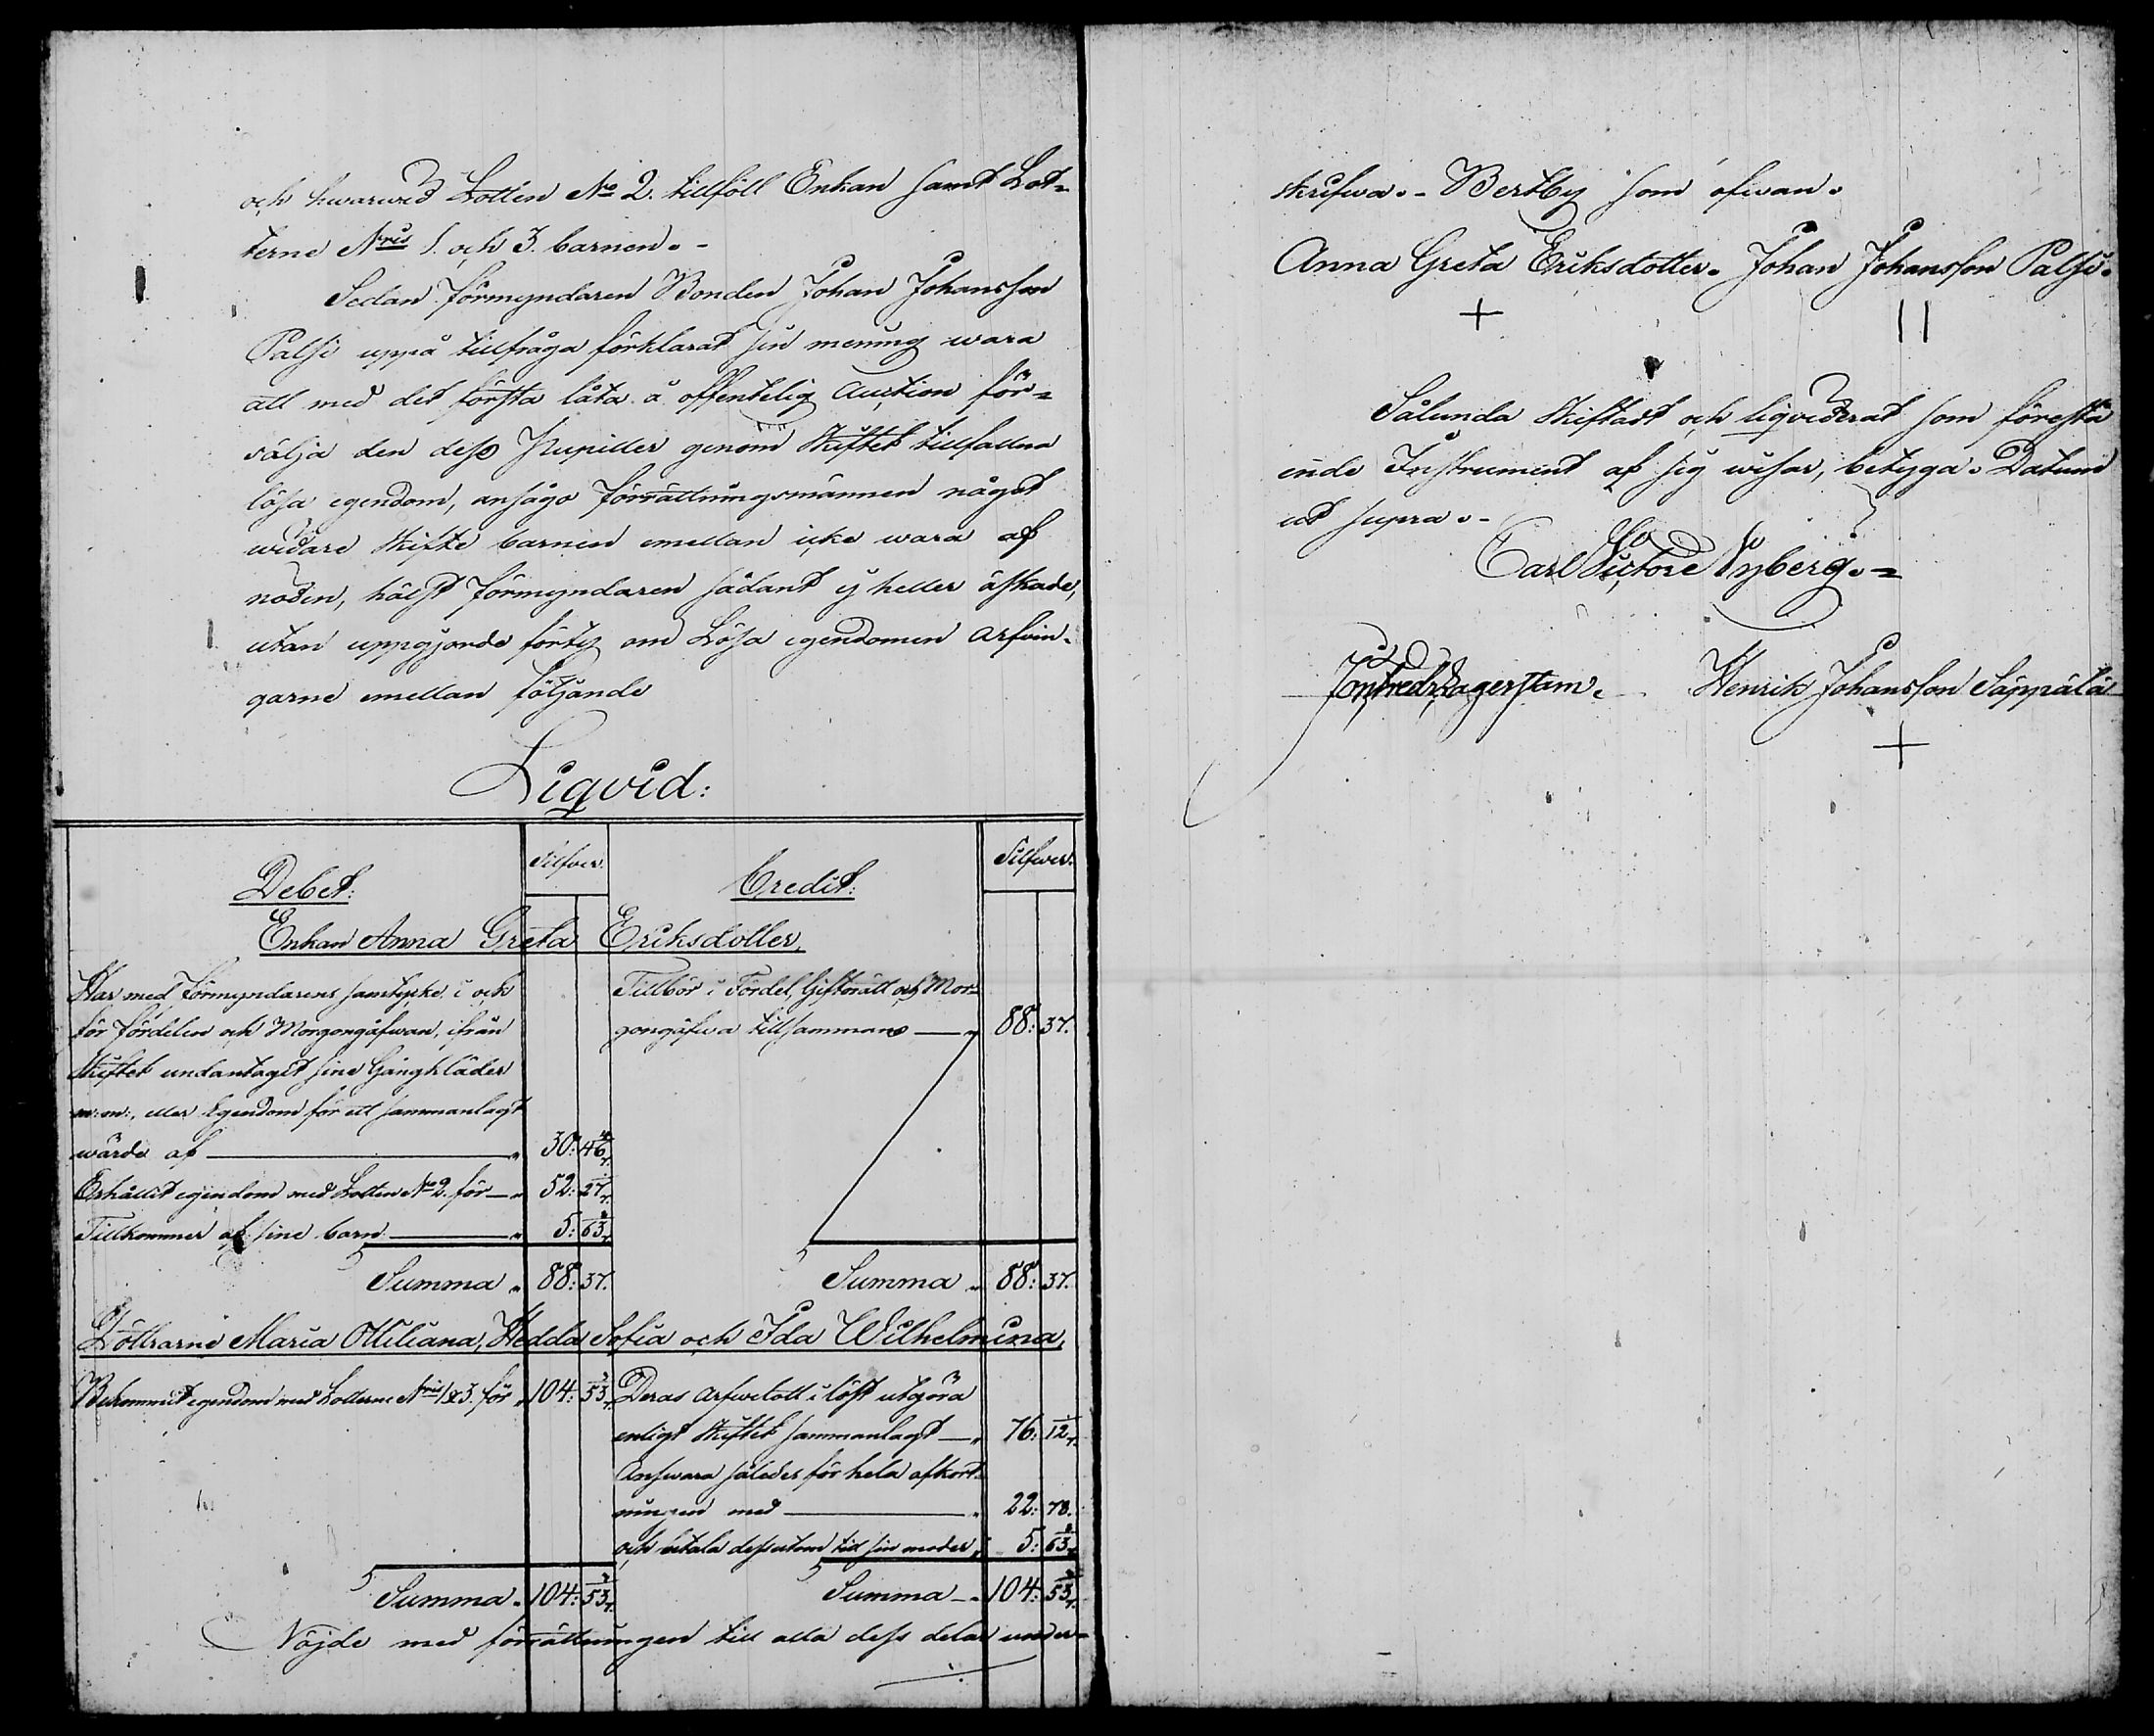 och hwarvid Lotten No 2. tillföll Enkan samt Lot-
terne Nris 1. och 3. barnen. -
Sedan Förmyndaren Bonden Johan Johansson
Palsi uppå tillfråga förklarat sin mening wara
att med det första låta å offentelig Auction för-
sälja den dess Pupiller genom Skiftet tillfallna
lösa egendom, ansågo Förrättningsmännen något
widare Skifte barnen emellan icke wara af
nöden, hälst Förmyndaren sådant ej heller äskade,
utan uppgjorde förty om Lösa egendomen Arfvin-
garne emellan följande
Liqvid:
Debet: Silfver. Credit: Silfwer.
Enkan Anna Greta Eriksdotter,
Har med Förmyndarens samtycke i och
för Fördelen och Morgongåfwan, ifrån
Skiftet undantagit sine Gångkläder
m: m:, eller Egendom för ett sammanlagt
wärde af 30: 46 4/7.
Erhållit egendom med Lotten No 2. för 52: 27 1/7.
Tillkommer af sine barn 5: 63 2/7.
Summa 88: 37.
Tillbör i Fördel, Giftorätt och Mor-
gongåfwa tillsammans 88: 37.
Summa 88: 37.
Döttrarne Maria Ottiliana, Hedda Sofia och Ida Wilhelmina,
Bekommit egendom med Lotterne Nris 1 & 3. för 104: 53 3/7.
Summa 104: 53 3/7.
Deras Arfwelott i löst utgöra
enligt Skiftet sammanlagt 76: 12 1/7.
Answara således för hela afkort-
ningen med 22: 78.
och betala dessutom till sin moder 5: 63 2/7.
Summa 104: 53 3/7.
Nöjde med förrättningen till alla dess delar under-
skrifwa. - Bertby som ofwan.
Anna Greta Eriksdotter. Johan Johansson Palsi.
Sålunda Skiftadt och liqviderat som förestå
ende Instrument af sig wisar, betyga. Datum
ut supra. -
Carl Victor Nyberg. -
Lagerstam. Henrik Johansson Säppälä